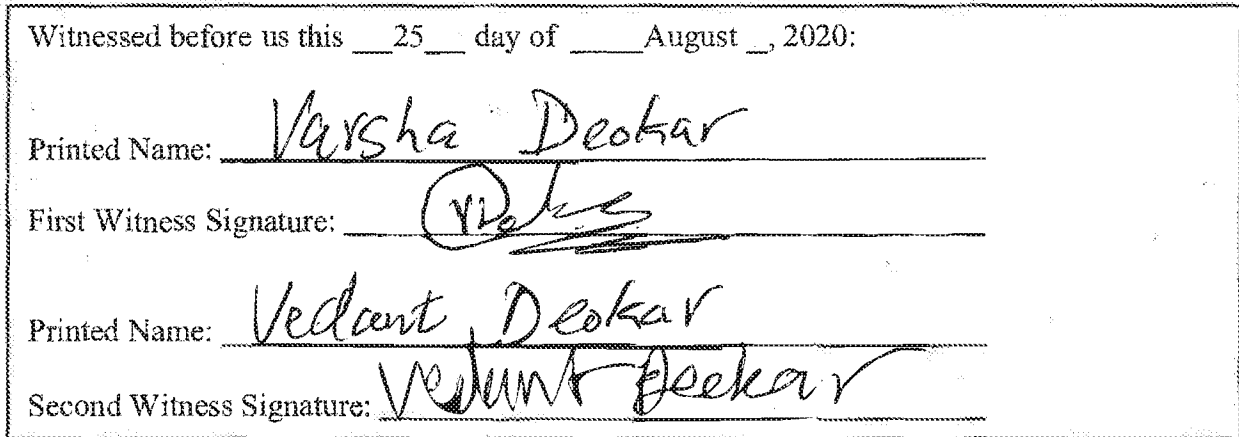 Witnessed before us this __25__ day of _____August _, 2020:
Printed Name: Varsha Deokar
First Witness Signature:
Printed Name: Vedant Deokar
Second Witness Signature: Vedant Deokar